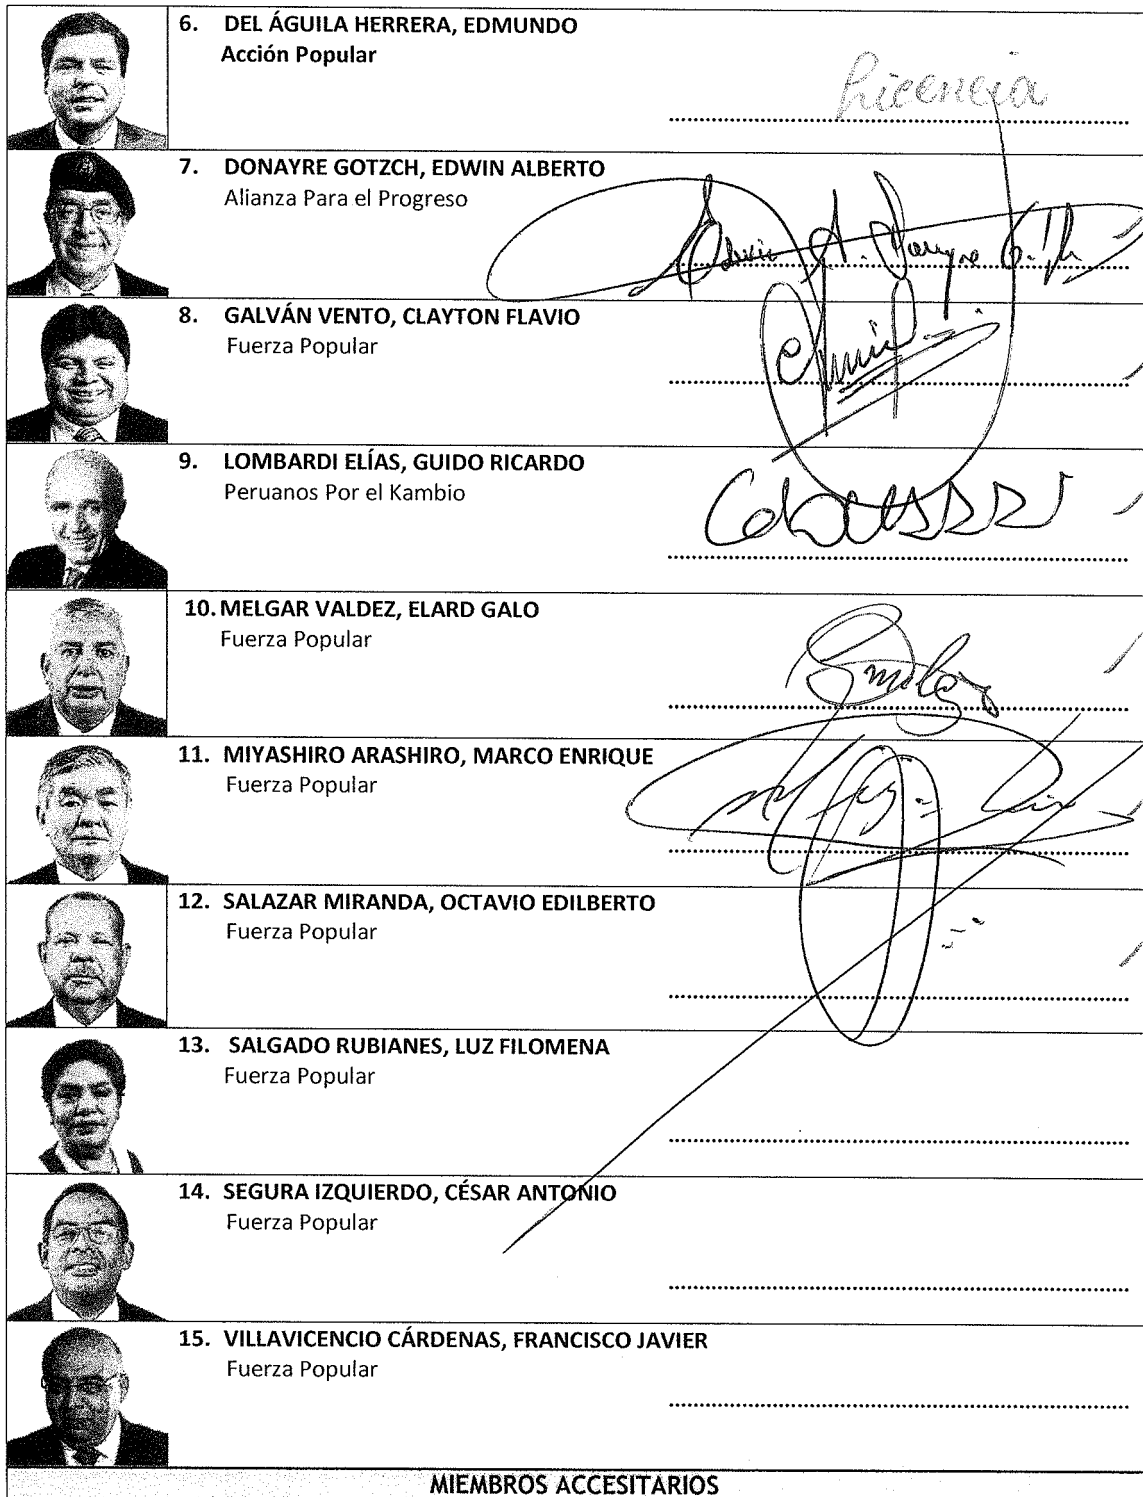 6. DEL ÁGUILA HERRERA, EDMUNDO
Acción Popular
Licencia
7. DONAYRE GOTZCH, EDWIN ALBERTO
Alianza Para el Progreso
8. GALVÁN VENTO, CLAYTON FLAVIO
Fuerza Popular
9. LOMBARDI ELÍAS, GUIDO RICARDO
Peruanos Por el Kambio
10. MELGAR VALDEZ, ELARD GALO
Fuerza Popular
11. MIYASHIRO ARASHIRO, MARCO ENRIQUE
Fuerza Popular
12. SALAZAR MIRANDA, OCTAVIO EDILBERTO
Fuerza Popular
13. SALGADO RUBIANES, LUZ FILOMENA
Fuerza Popular
14. SEGURA IZQUIERDO, CÉSAR ANTONIO
Fuerza Popular
15. VILLAVICENCIO CÁRDENAS, FRANCISCO JAVIER
Fuerza Popular
MIEMBROS ACCESITARIOS